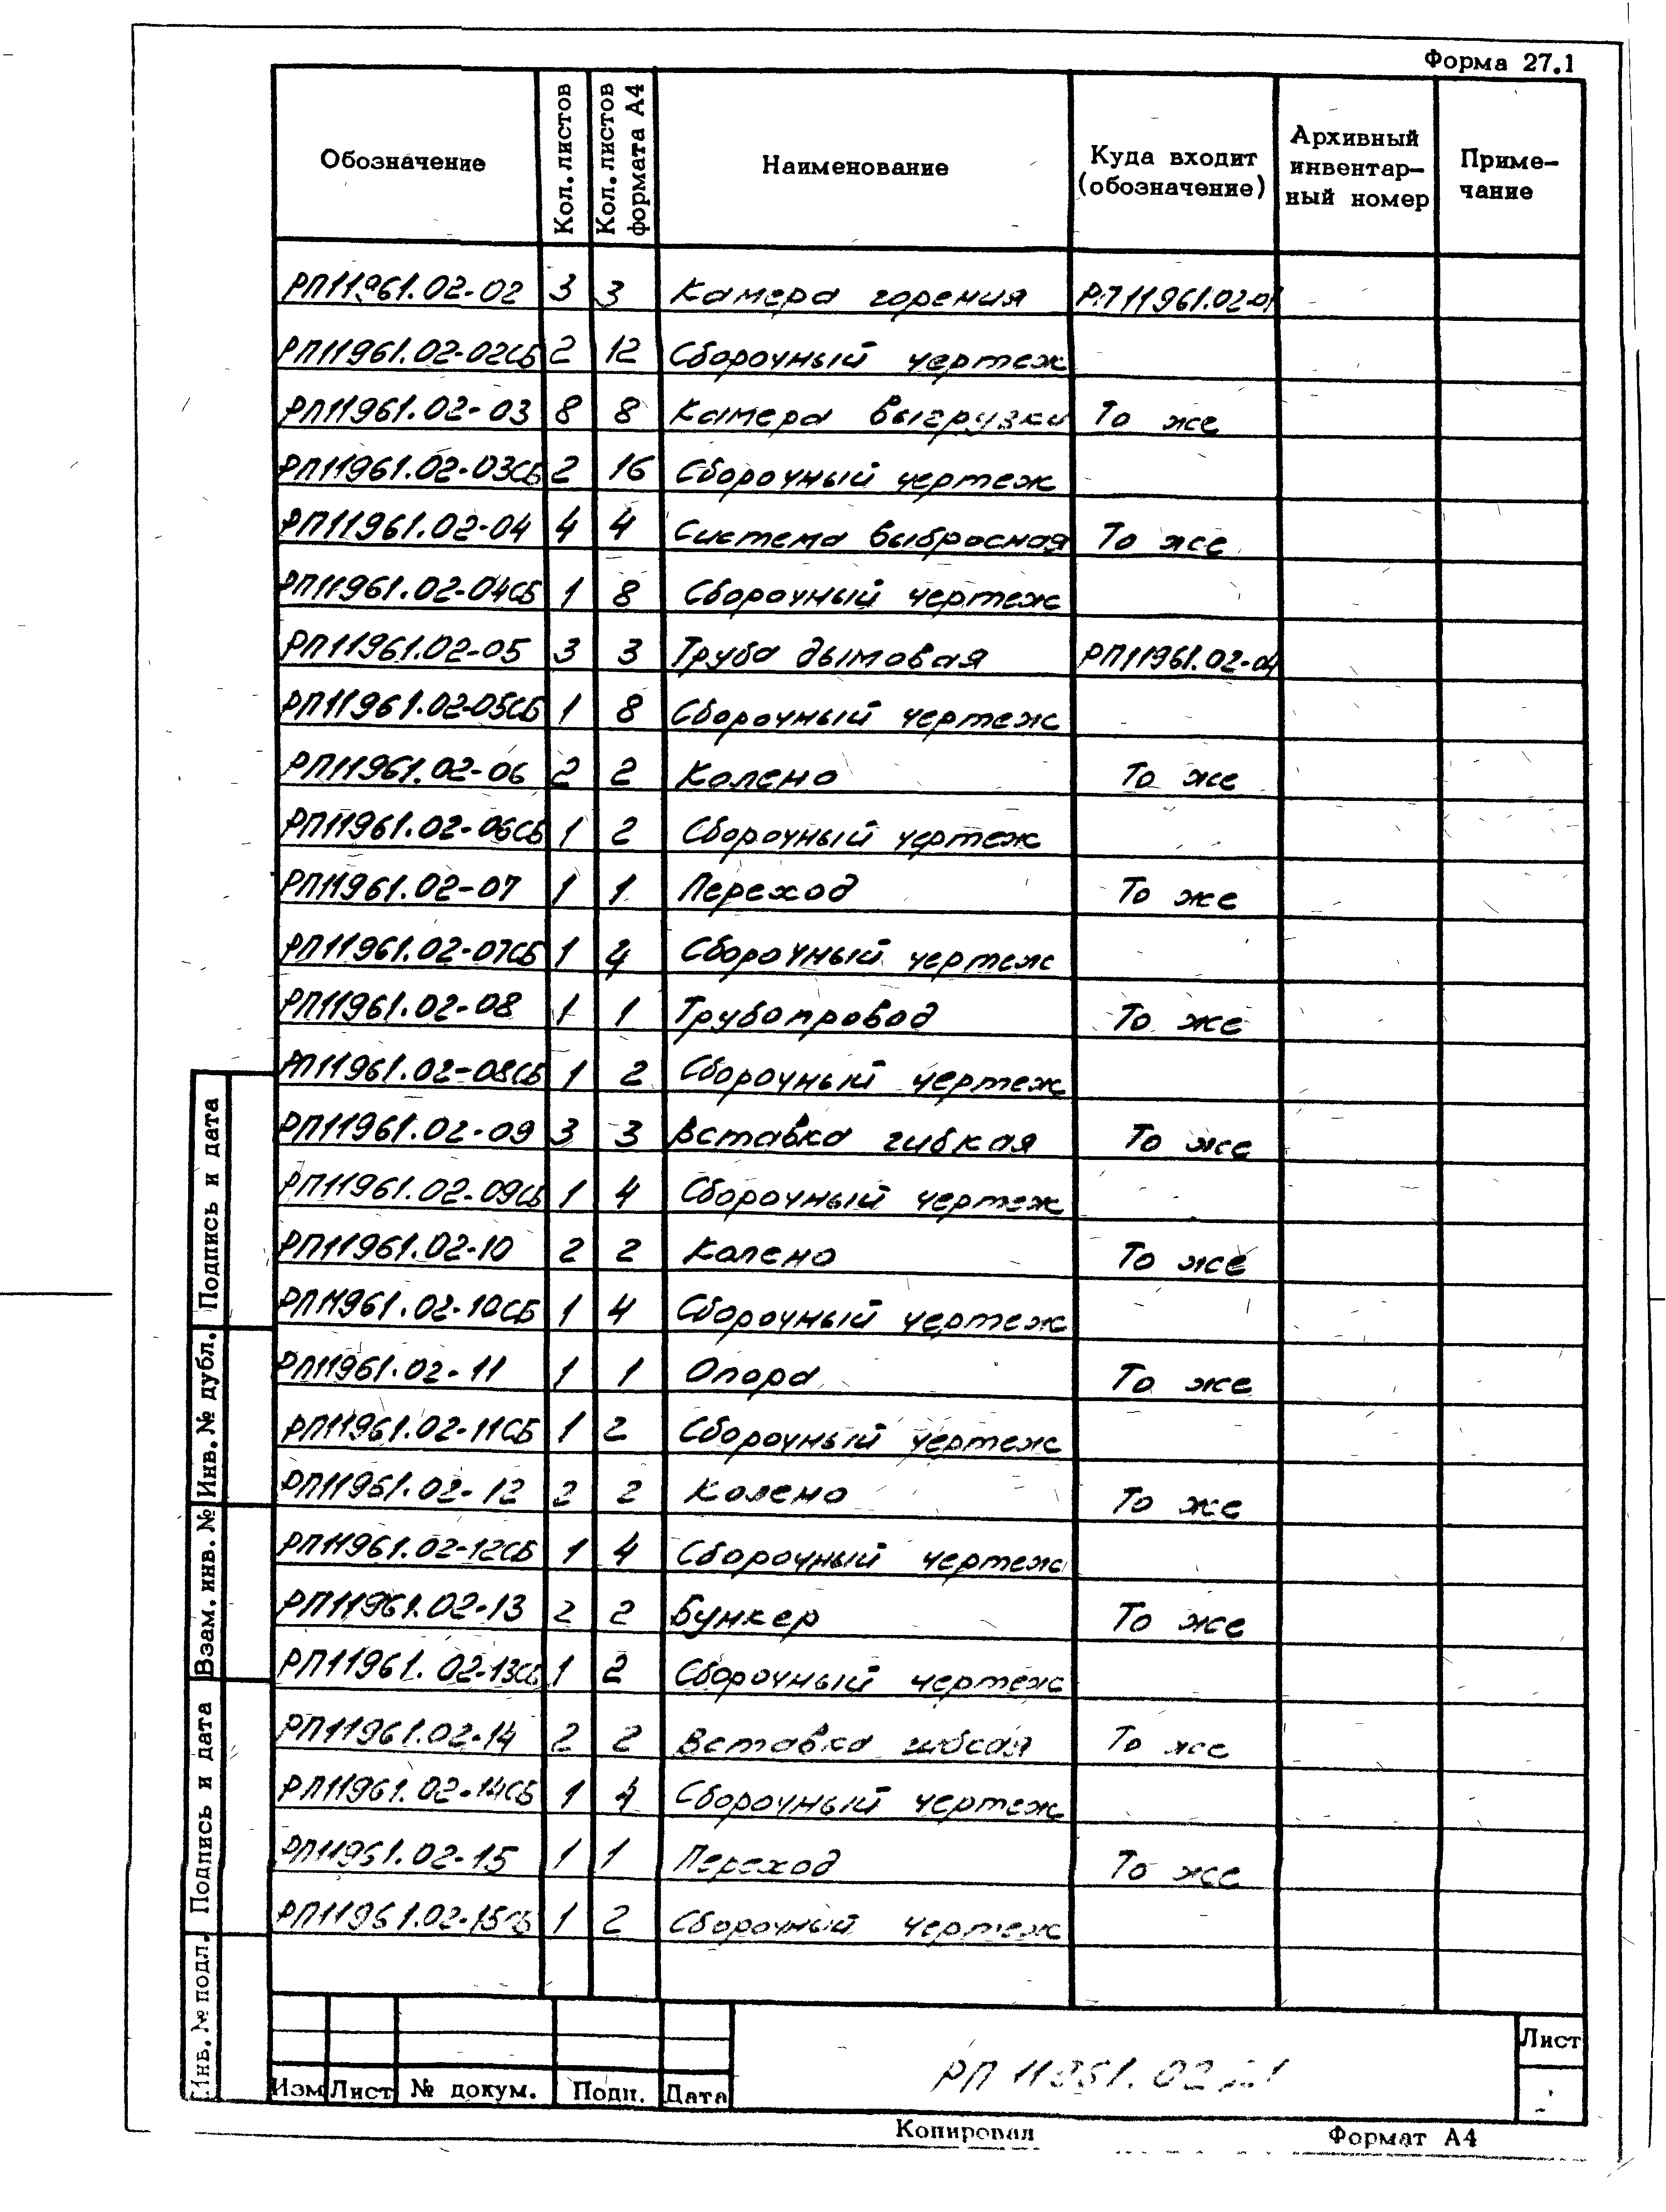 Форма 27.1
Обозначение Кол. листов Кол. листов формата А4 Наименование Куда входит (обозначение) Архивный инвентар- ный номер Приме- чание
РП11961.02-02 3 3 Камера горения РП11961.02-01
РП11961.02-02СБ 2 12 Сборочный чертеж
РП11961.02-03 8 8 Камера выгрузки То же
РП11961.02-03СБ 2 16 Сборочный чертеж
РП11961.02-04 4 4 Система выбросная То же
РП11961.02-04СБ 1 8 Сборочный чертеж
РП11961.02-05 3 3 Труба дымовая РП11961.02-04
РП11961.02-05СБ 1 8 Сборочный чертеж
РП11961.02-06 2 2 Колено То же
РП11961.02-06СБ 1 2 Сборочный чертеж
РП11961.02-07 1 1 Переход То же
РП11961.02-07СБ 1 4 Сборочный чертеж
РП11961.02-08 1 1 Трубопровод То же
РП11961.02-08СБ 1 2 Сборочный чертеж
РП11961.02-09 3 3 Вставка гибкая То же
РП11961.02-09СБ 1 4 Сборочный чертеж
РП11961.02-10 2 2 Колено То же
РП11961.02-10СБ 1 4 Сборочный чертеж
РП11961.02-11 1 1 Опора То же
РП11961.02-11СБ 1 2 Сборочный чертеж
РП11961.02-12 2 2 Колено То же
РП11961.02-12СБ 1 4 Сборочный чертеж
РП11961.02-13 2 2 Бункер То же
РП11961.02-13СБ 1 2 Сборочный чертеж
РП11961.02-14 2 2 Вставка гибкая То же
РП11961.02-14СБ 1 4 Сборочный чертеж
РП11961.02-15 1 1 Переход То же
РП11961.02-15СБ 1 2 Сборочный чертеж
Подпись и дата
Инв. № дубл.
Взам. инв. №
Подпись и дата
Инв. № подл.
Изм Лист № докум. Подп. Дата
Лист
Копировал Формат А4